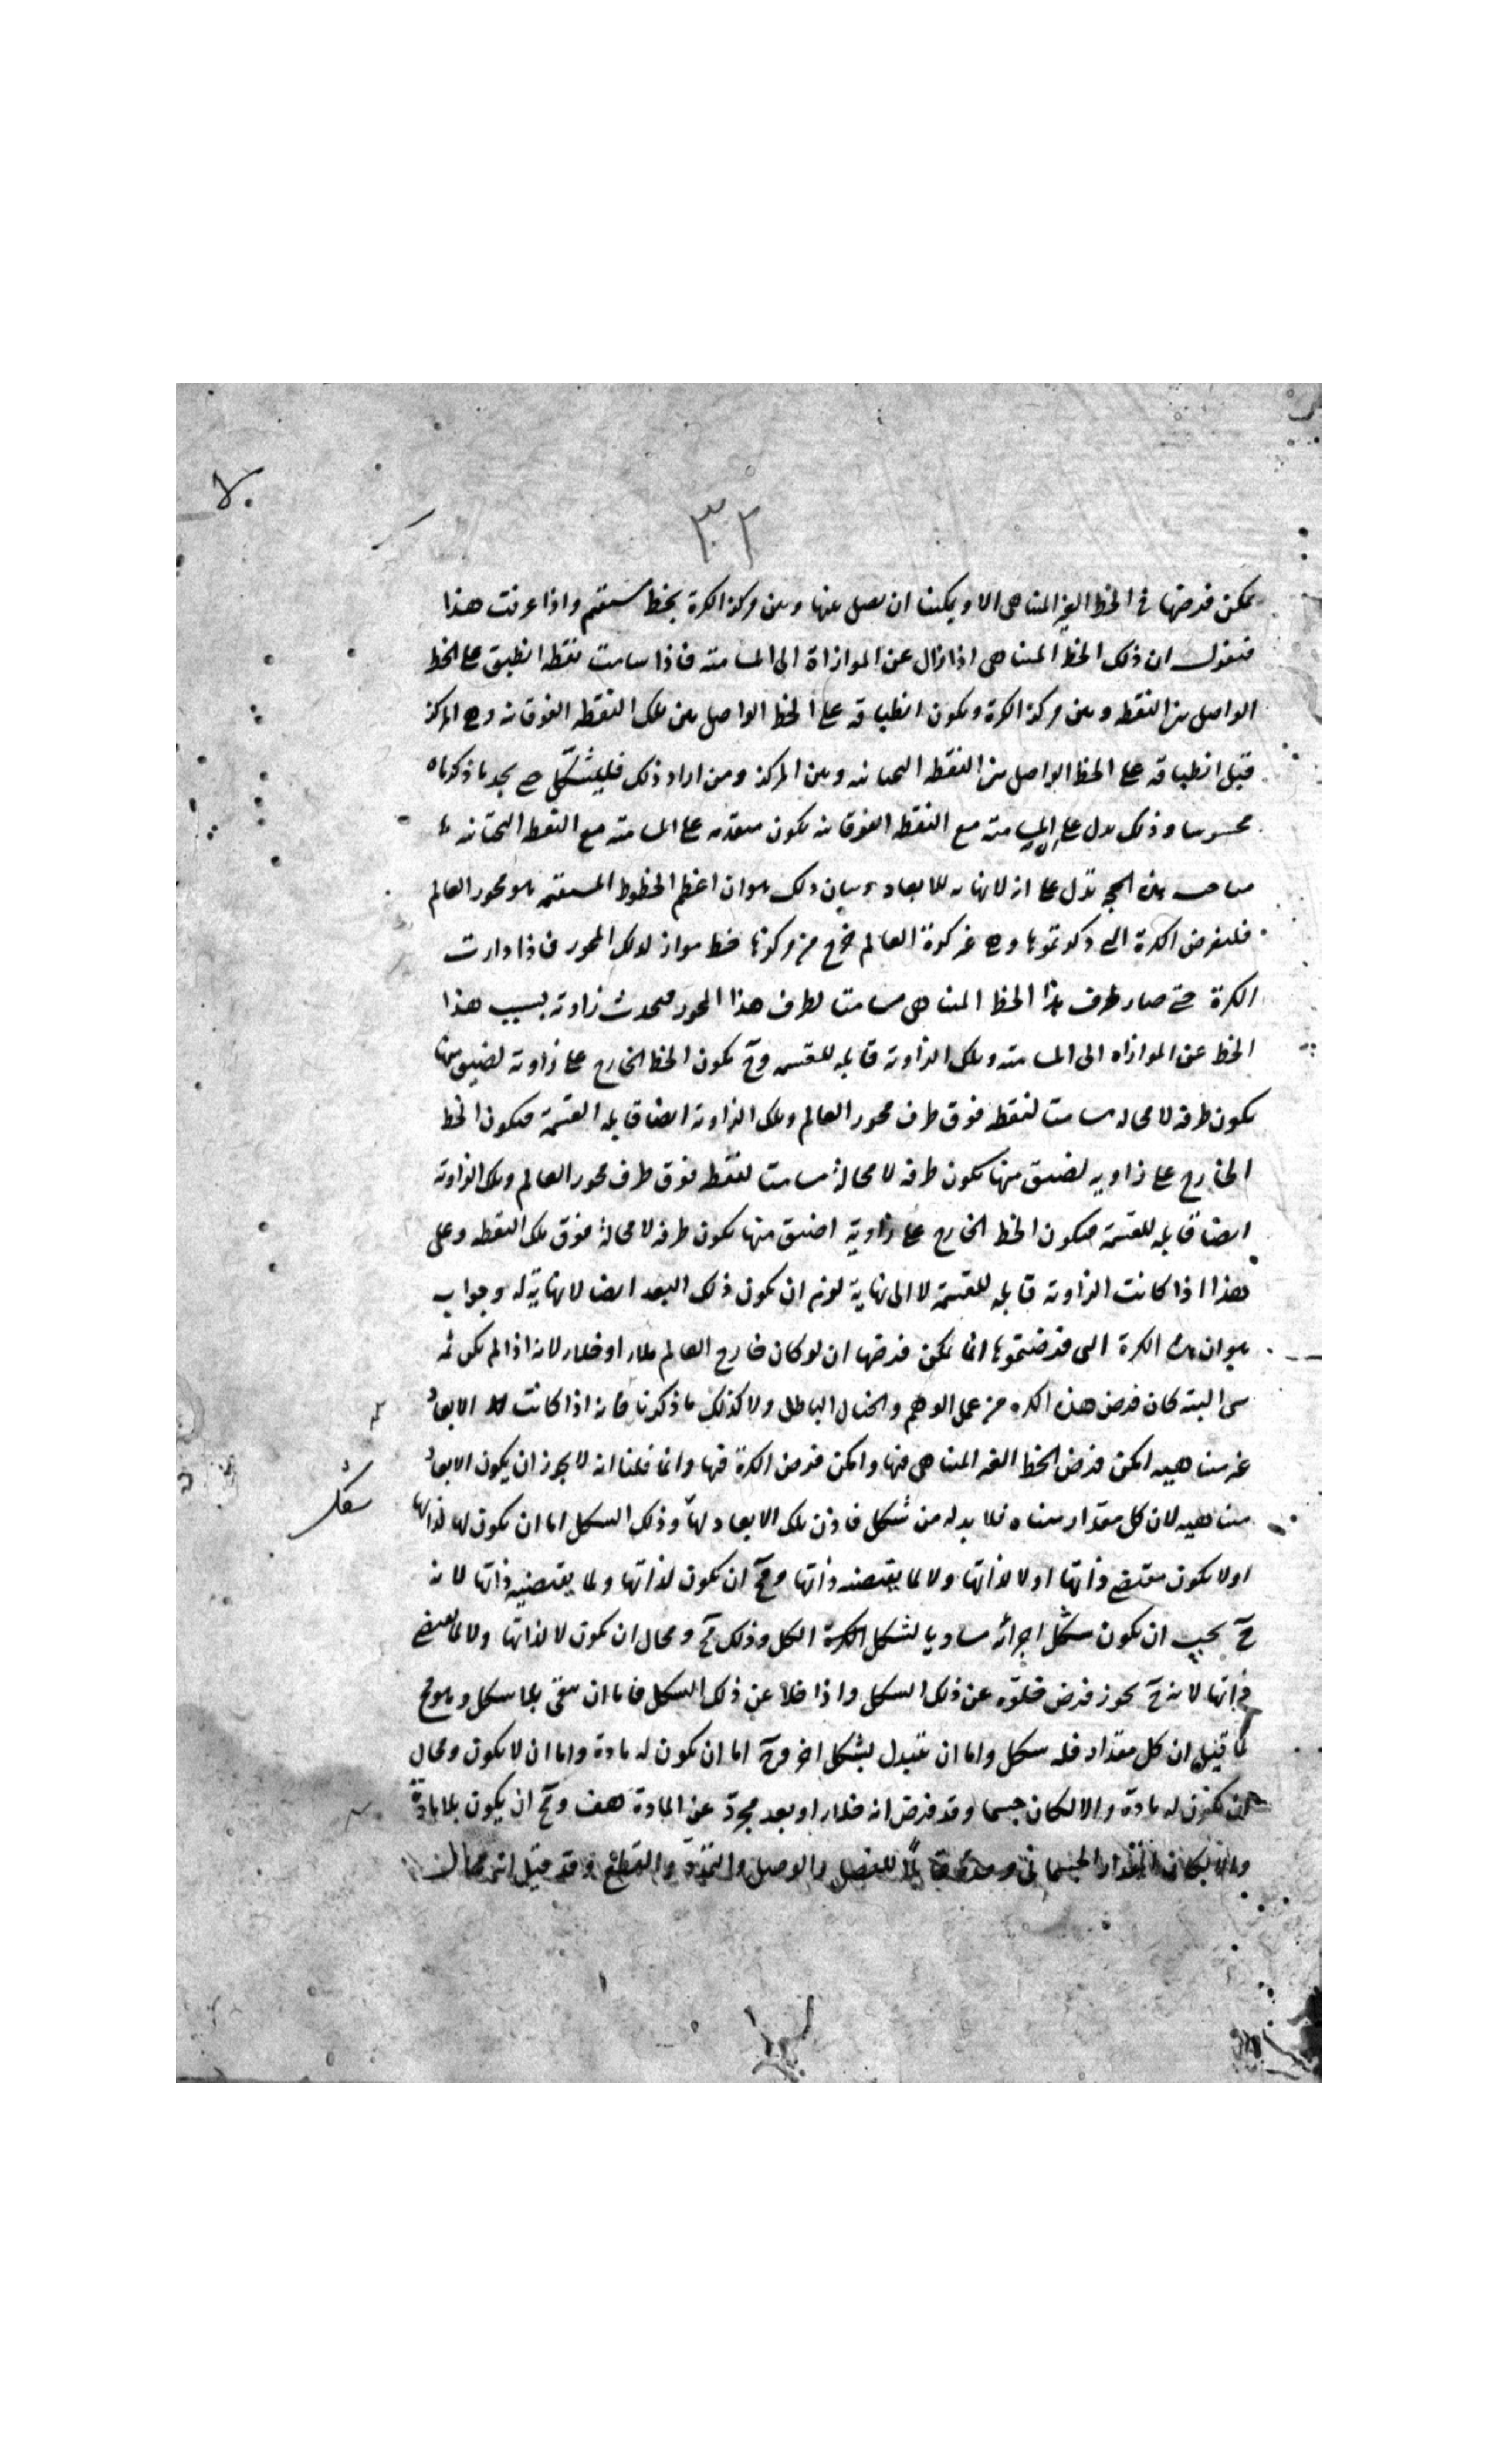 ٣٢
يمكن فرضها في الخط الغير المتناهي الا ويمكننا ان نصل بينها وبين مركز الكرة بخط مستقيم واذا عرفت هذا
فنقول ان ذلك الخط المتناهي اذا زال عن الموازاة الى المسامتة فاذا سامت نقطة انطبق على الخط
الواصل بين النقطة وبين مركز الكرة ويكون انطباقه على الخط الواصل بين تلك النقطة الفوقانية وبين المركز
قبل انطباقه على الخط الواصل بين النقطة التحتانية وبين المركز ومن اراد ذلك فليشكل حتى يجد ما ذكرناه
محسوسا وذلك يدل على ان المسامتة مع النقطة الفوقانية يكون متقدمة على المسامتة مع النقطة التحتانية
هذه الحجج تدل على انه لا نهاية للابعاد وبيان ذلك هو ان اعظم الخطوط المستقيمة هو محور العالم
فلنفرض الكرة التي ذكرتموها وهي غير كرة العالم خرج من مركزها خط مواز لذلك المحور فاذا دارت
الكرة حتى صار طرف هذا الخط المتناهي مسامتا لطرف هذا المحور فيحدث زاوية بسبب هذا
الخط عن الموازاه الى المسامتة وتلك الزاوية قابلة للقسمة وح يكون الخط الخارج على زاوية اضيق منها
يكون طرفه لا محالة مسامتا لنقطة فوق طرف محور العالم وتلك الزاوية ايضا قابلة القسمة فيكون الخط
الخارج على زاوية اضيق منها يكون طرفه لا محالة مسامتا لنقطة فوق طرف محور العالم وتلك الزاوية
ايضا قابلة للقسمة فيكون الخط الخارج على زاوية اضيق منها يكون طرفه لا محالة فوق تلك النقطة وعلى
هذا اذا كانت الزاوية قابلة للقسمة لا الى نهاية لزم ان يكون ذلك البعد ايضا لا نهاية له وجوابه
هو ان هذه الكرة التي فرضتموها انما يمكن فرضها ان لو كان خارج العالم ملاء او خلاء لانه اذا لم يكن ثمة
شي البتة كان فرض هذه الكره من عمل الوهم والخيال الباطل ولا كذلك ما ذكرنا فانه اذا كانت الابعاد
غير متناهيه امكن فرض الخط الغير المتناهي فيها وامكن فرض الكرة فيها وانما قلنا انه لا يجوز ان يكون الابعاد
متناهيه لان كل مقدار متناه فلا بد له من شكل فاذن تلك الابعاد لها وذلك الشكل اما ان يكون لها لذاتها
شكل
او لا يكون مقتضى ذاتها او لا لذاتها ولا لما يقتضيه ذاتها ومح ان يكون لذاتها ولما يقتضيه ذاتها لانه
ح يجب ان يكون شكل اجزائه مساويا لشكل الكل وذلك مح ومحال ان يكون لا لذاتها ولا لما يقتضي
ذاتها لانه ح يجوز فرض خلوه عن ذلك الشكل واذا خلا عن ذلك الشكل فاما ان يبقى بلا شكل وهو مح
لما قيل ان كل مقدار فله شكل واما ان يتبدل بشكل اخر وح اما ان يكون له مادة واما ان لا يكون ومحال
ان يكون له مادة والا لكان جسما وقد فرض انه خلاء او بعد مجرد عن المادة هف ومح ان يكون بلا مادة
والا لكان المقدار الجسماني وحده قابلا للفصل والوصل والتمدد والتقطع وقد قيل انه محال